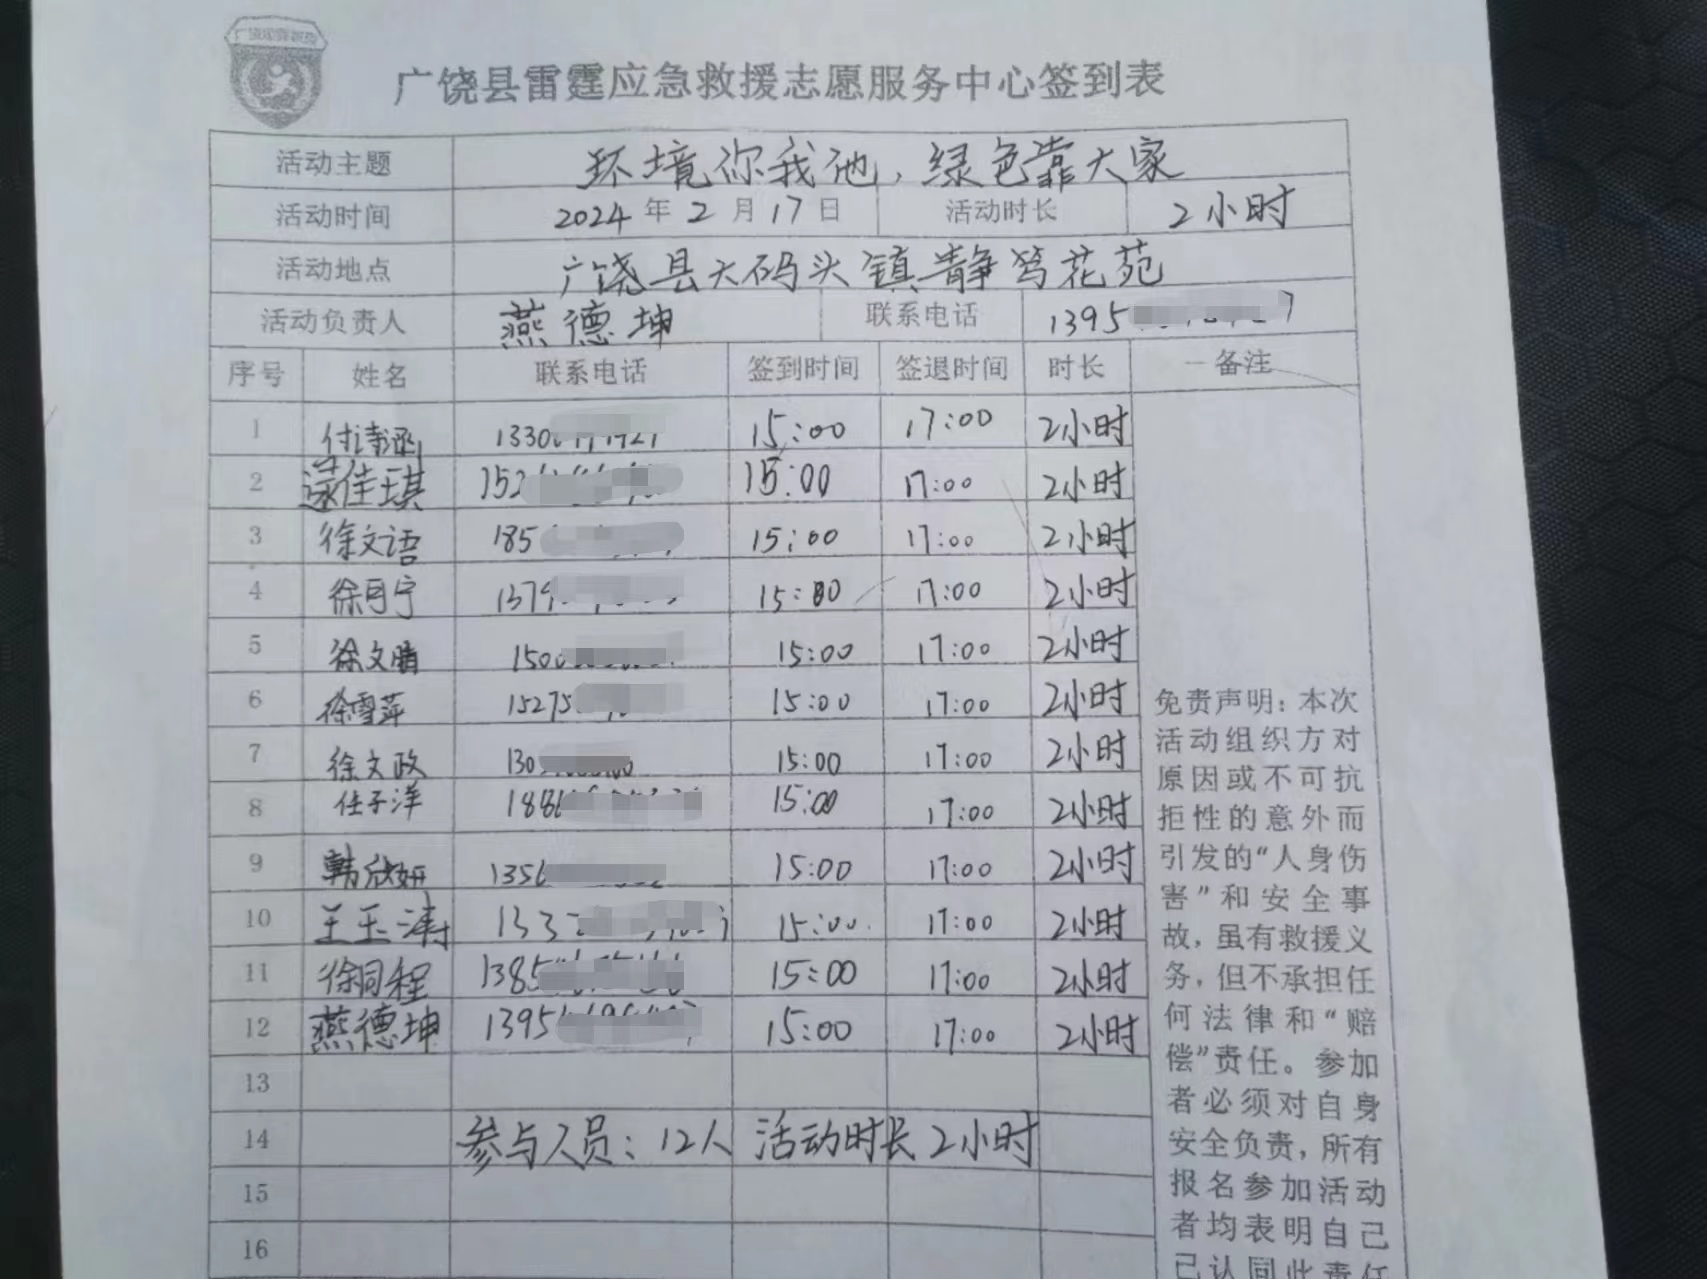 广饶县雷霆应急救援志愿服务中心签到表
活动主题 环境你我他，绿色靠大家
活动时间 2024年2月17日 活动时长 2小时
活动地点 广饶县大码头镇静笃花苑
活动负责人 燕德坤 联系电话 1395
序号 姓名 联系电话 签到时间 签退时间 时长 备注
1 付诗函 1330 15:00 17:00 2小时
2 佳琪 152 15:00 17:00 2小时
3 徐文语 185 15:00 17:00 2小时
4 徐月宁 1379 15:00 17:00 2小时
5 徐文晴 150 15:00 17:00 2小时
6 徐雪萍 15275 15:00 17:00 2小时
7 徐文政 130 15:00 17:00 2小时
8 任子洋 188 15:00 17:00 2小时
9 韩欣妍 1356 15:00 17:00 2小时
10 王玉涛 133 15:00 17:00 2小时
11 徐同程 1385 15:00 17:00 2小时
12 燕德坤 1395 15:00 17:00 2小时
13
14 参与人员：12人 活动时长2小时
15
16
免责声明：本次
活动组织方对
原因或不可抗
拒性的意外而
引发的“人身伤
害”和安全事
故，虽有救援义
务，但不承担任
何法律和“赔
偿”责任。参加
者必须对自身
安全负责，所有
报名参加活动
者均表明自己
已认同此责任